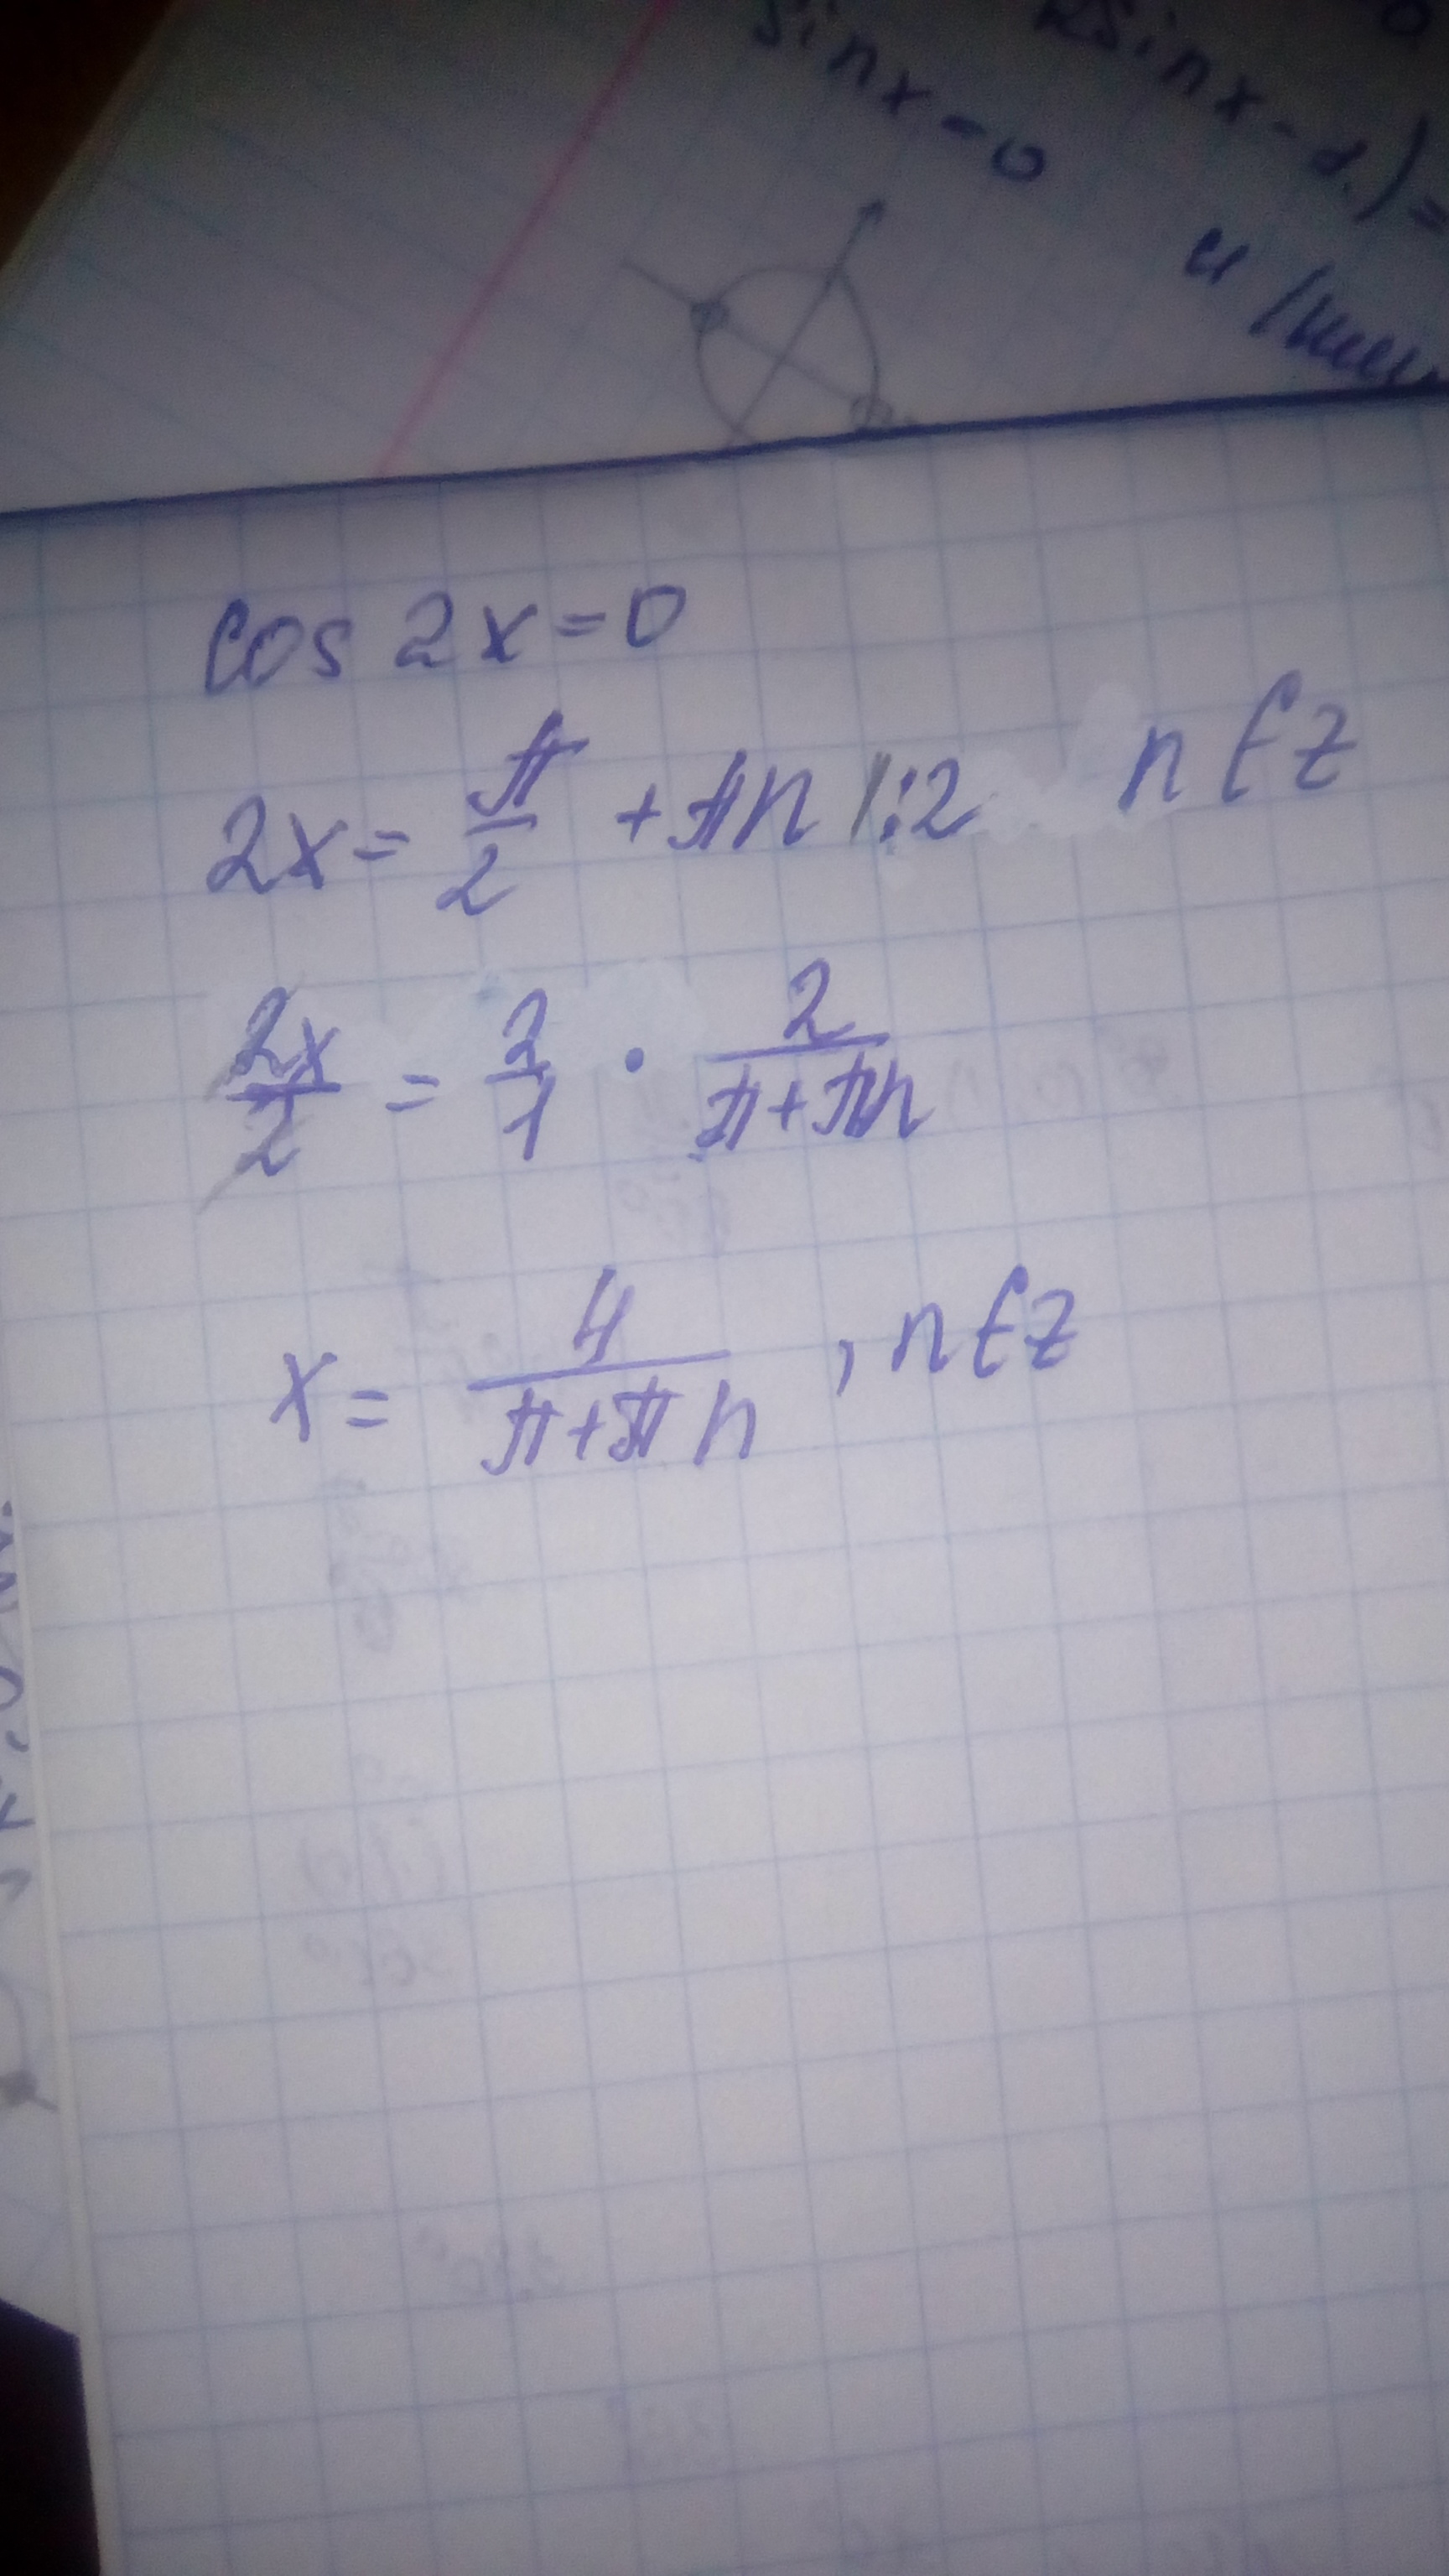 sin x = 0
2sin x -
и
cos 2x = 0
2x = π/2 + πn |:2 n ∈ Z
2x/2 = 2/1 · 2/(π+πn)
x = 4/(π+πn) , n ∈ Z